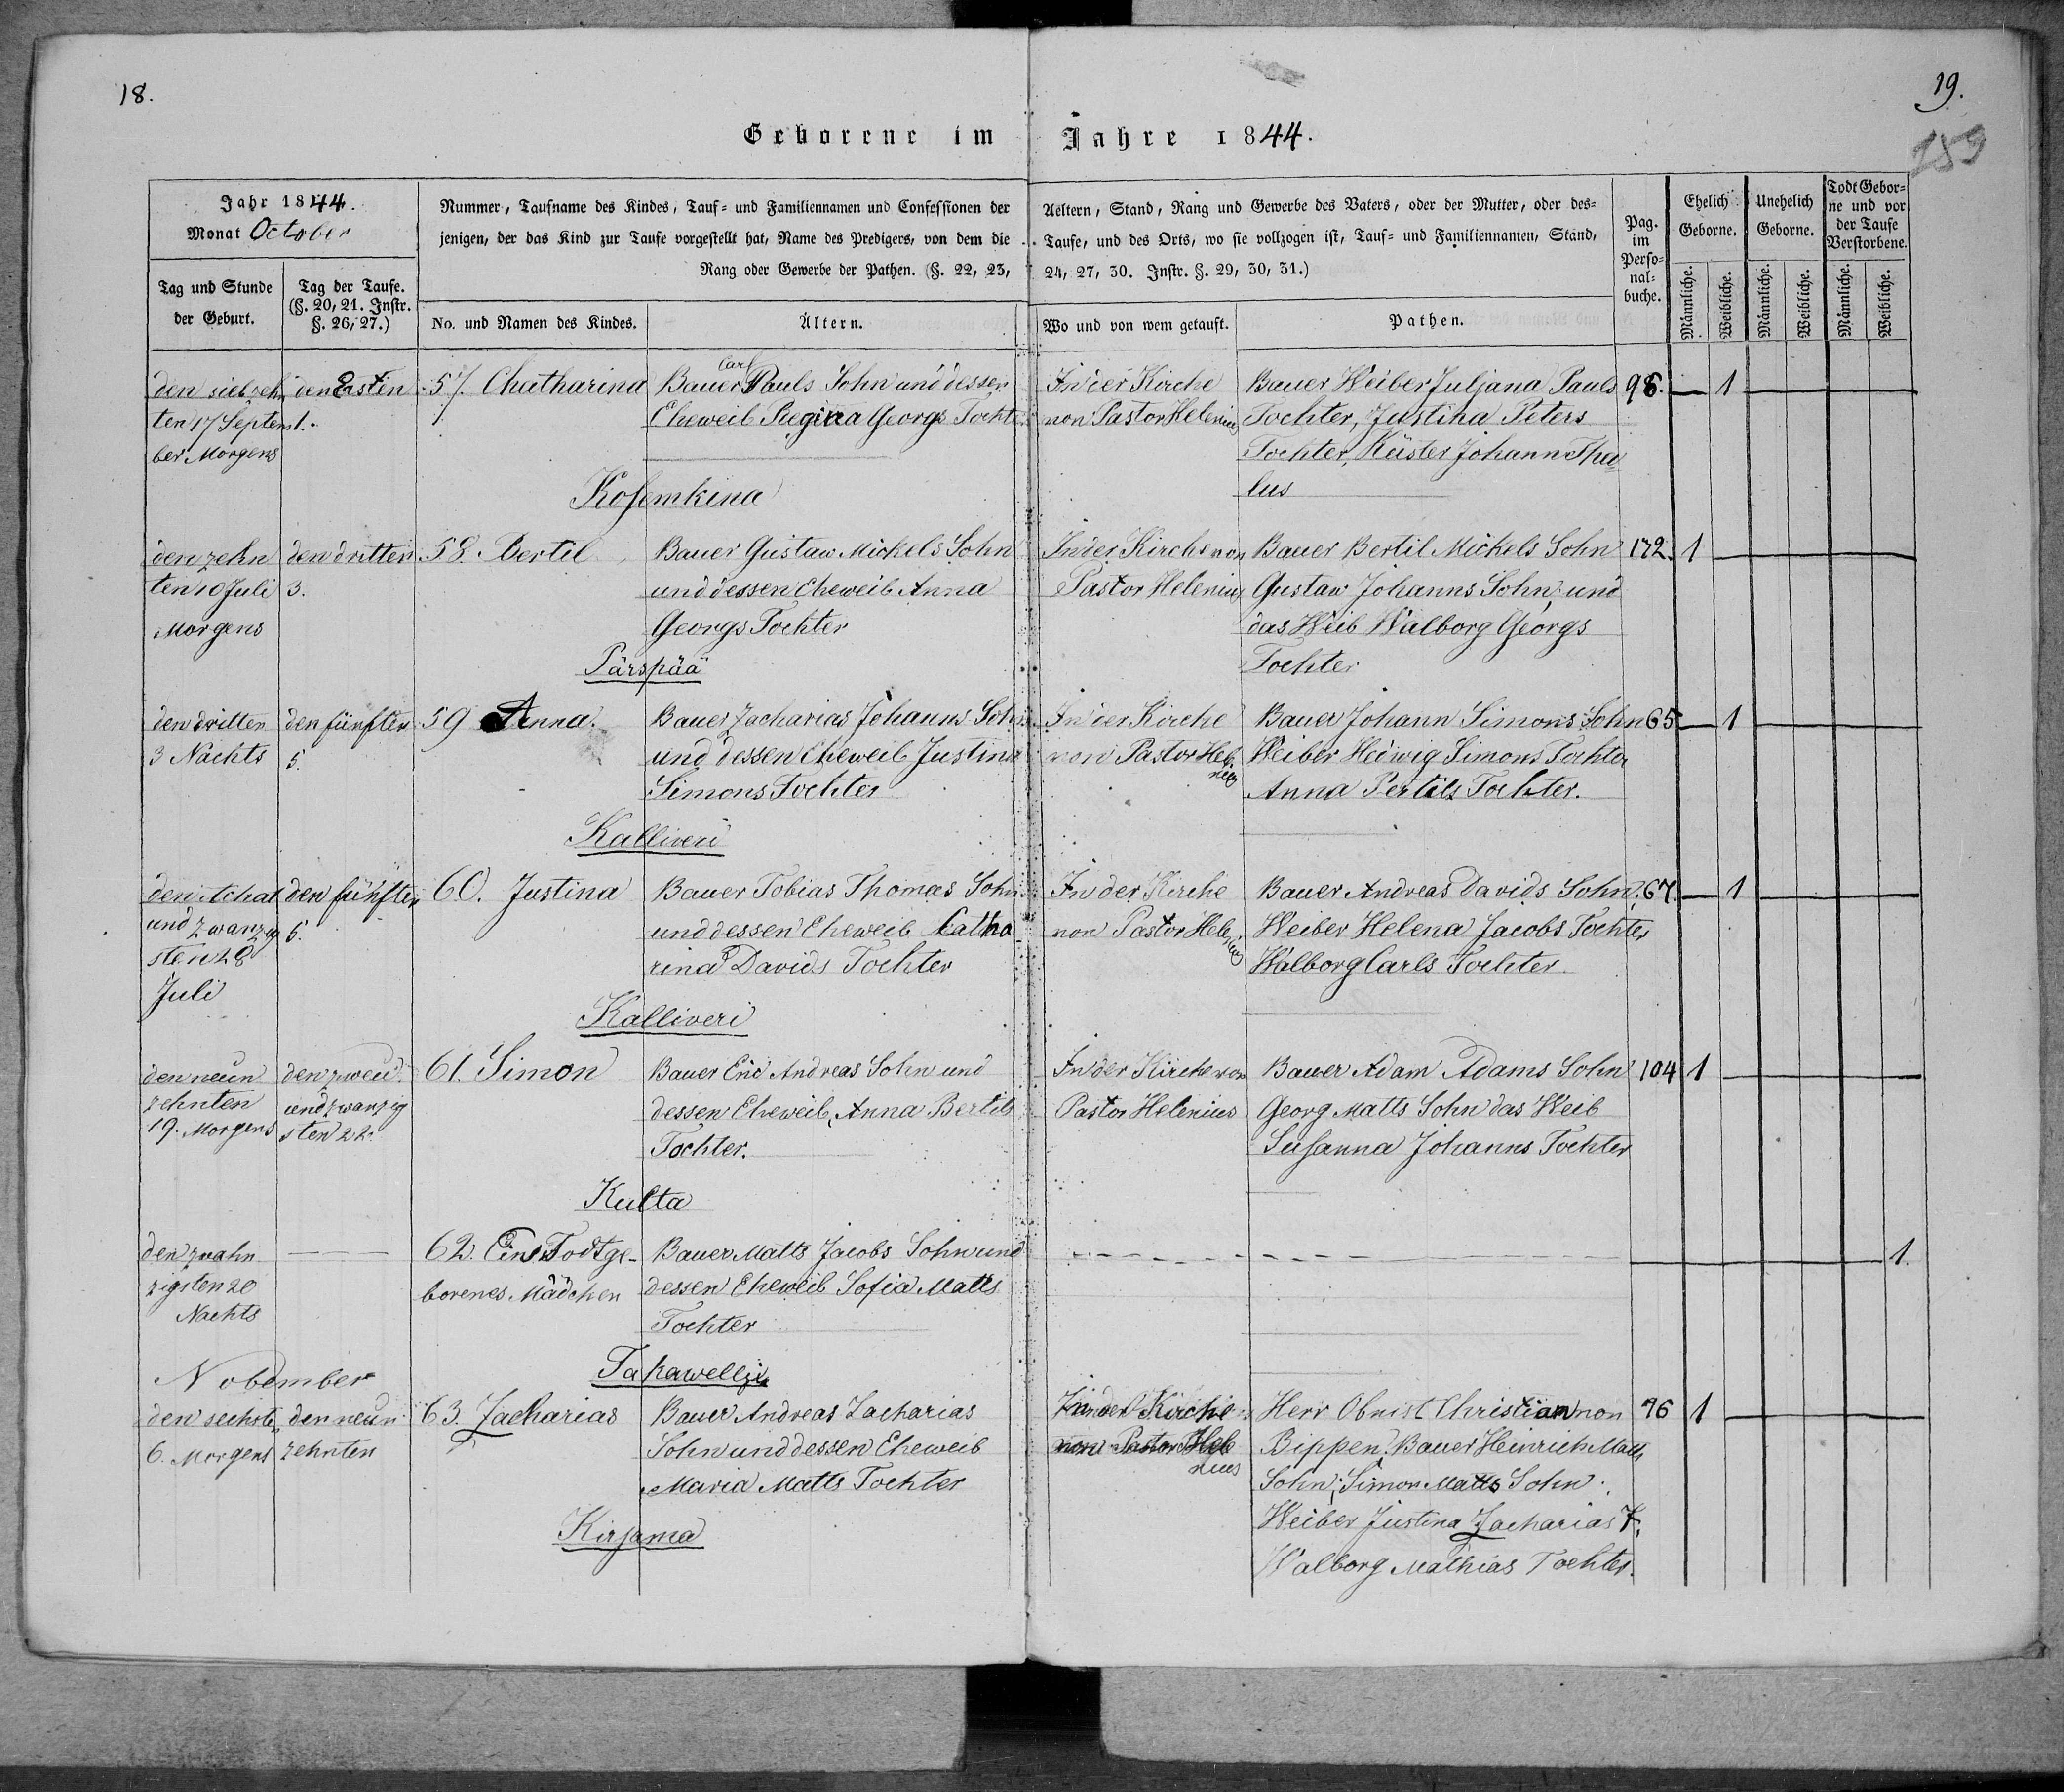 18.
19.
159
Geborene im Jahre 1844.
Jahr 1844.
Monat October
Nummer, Taufname des Kindes, Tauf- und Familiennamen und Confessionen der
jenigen, der das Kind zur Taufe vorgestellt hat, Name des Predigers, von dem die
Rang oder Gewerbe der Pathen. (§. 22, 23,
Tag und Stunde
der Geburt.
Tag der Taufe.
(§. 20, 21. Instr.
§. 26, 27.)
No. und Namen des Kindes.
Ältern.
Aeltern, Stand, Rang und Gewerbe des Vaters, oder der Mutter, oder des-
Taufe, und des Orts, wo sie vollzogen ist, Tauf- und Familiennamen, Stand,
24, 27, 30. Instr. §. 29, 30, 31.)
Wo und von wem getauft.
Pathen.
Pag.
im
Perso-
nal-
buche.
Ehelich
Geborne.
Unehelich
Geborne.
Todt Gebor-
ne und vor
der Taufe
Verstorbene.
Männliche.
Weibliche.
Männliche.
Weibliche.
Männliche.
Weibliche.
den siebzehn
ten 17 Septem
ber Morgens
den Ersten
1.
57. Chatharina
Carl
Bauer Pauls Sohn und dessen
Eheweib Regina Georgs Tochter
Kosemkina
In der Kirche
von Pastor Helenius
Bauer Weiber Juljana Pauls
Tochter, Justina Peters
Tochter, Küster Johann Tha
lus
98.
1
den zehn
ten 10 Juli
Morgens
den dritten
3.
58. Bertil
Bauer Gustaw Mickels Sohn
und dessen Eheweib Anna
Georgs Tochter
Pärspää
In der Kirche von
Pastor Helenius
Bauer Bertil Mickels Sohn
Gustaw Johanns Sohn, und
das Weib Walborg Georgs
Tochter
172.
1
den dritten
3 Nachts
den fünften
5.
59 Anna.
Bauer Zacharias Johanns Sohn
und dessen Eheweib Justina
Simons Tochter
Kalliveri
In der Kirche
von Pastor Hele
nius
Bauer Johann Simons Sohn
Weiber Hedwig Simons Tochter
Anna Pertils Tochter.
65
1
den Achat
und zwanzig
sten 28
Juli
den fünften
5.
60. Justina
Bauer Tobias Thomas Sohn
und dessen Eheweib Catha
rina Davids Tochter
Kalliveri
In der Kirche
von Pastor Hele
nius
Bauer Andreas Davids Sohn
Weiber Helena Jacobs Tochter
Walborg Carls Tochter.
67.
1
den neun
zehnten
19. Morgens
den zwei
und zwanzig
sten 22.
61. Simon
Bauer Eric Andreas Sohn und
dessen Eheweib, Anna Bertils
Tochter.
Kulta
In der Kirche von
Pastor Helenius
Bauer Adam Adams Sohn
Georg Matts Sohn das Weib
Susanna Johanns Tochter
104
1
den zwahn
zigsten 20
Nachts
62. Ein Todtge-
borenes Mädchen
Bauer Matts Jacobs Sohn und
dessen Eheweib Sofia Matts
Tochter
Takawellja
1.
November
den sechsten
6. Morgens
den neun
zehnten
63. Zacharias
Bauer Andreas Zacharias
Sohn und dessen Eheweib
Maria Matts Tochter
Kirjama
In der Kirche
von Pastor Hele
nius
Herr Obrist Christian von
Bippen, Bauer Heinrich Matts
Sohn, Simon Matts Sohn
Weiber Justina Zacharias T,
Walborg Mathias Tochter.
76
1